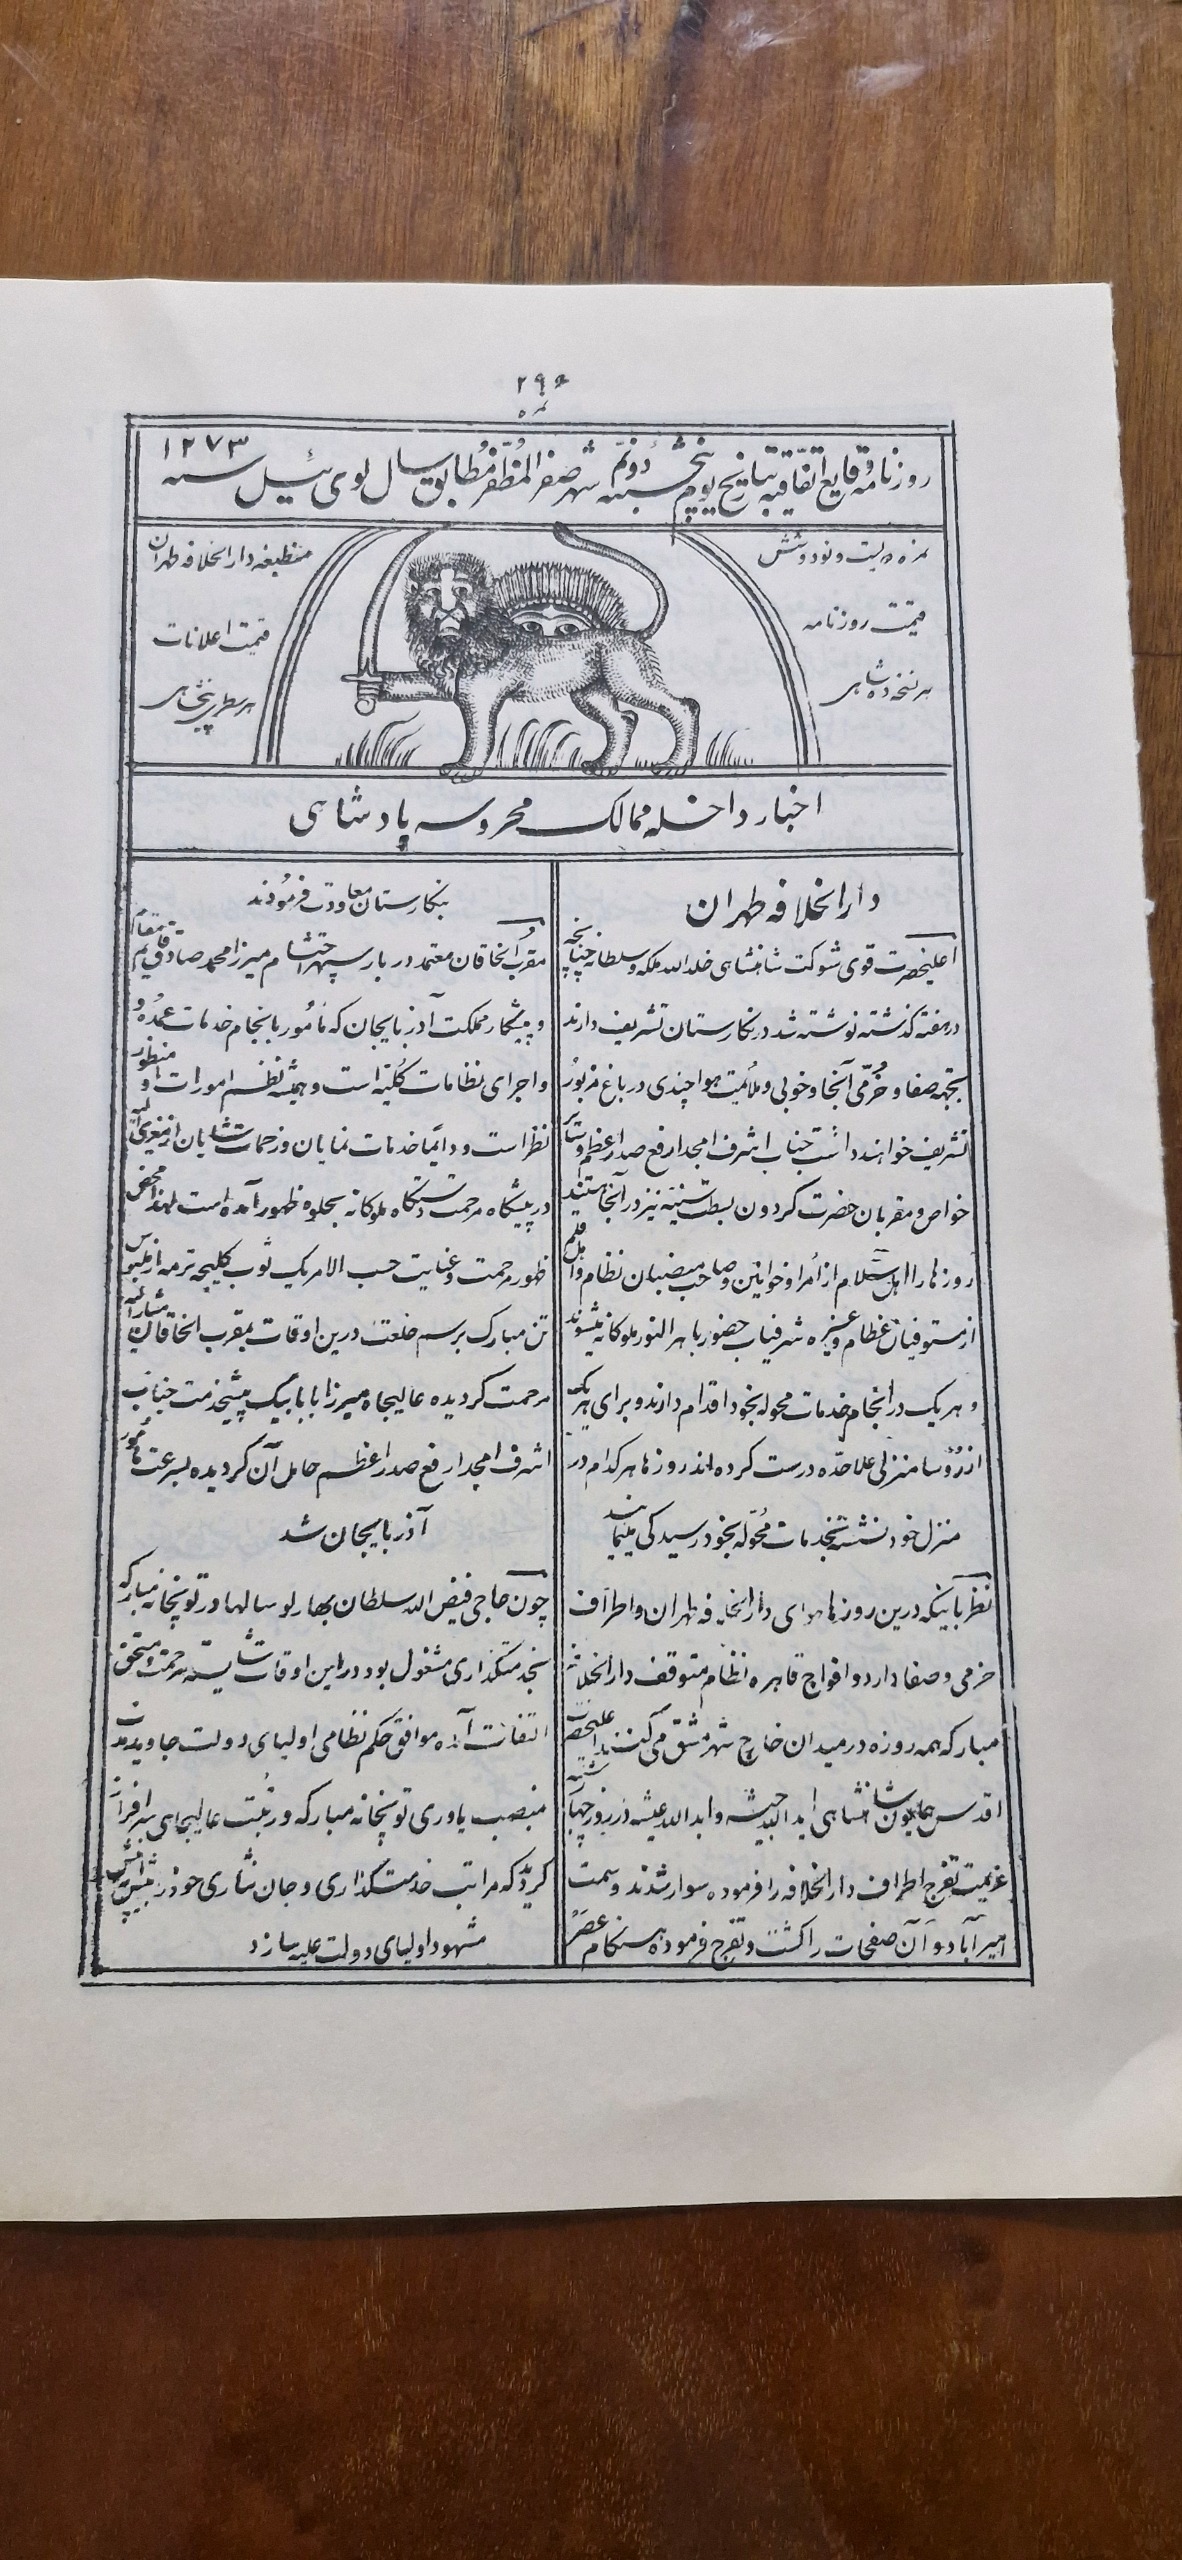 ۲۹۶
نمره
روزنامه وقایع اتفاقیه بتاریخ یوم پنجشنبه دوّیم شهر صفر المظفر مطابق سال لوی ئیل سنه ۱۲۷۳
نمره دویست و نود و شش
قیمت روزنامه
هر نسخه ده شاهی
منطبعه دار الخلافه طهران
قیمت اعلانات
هر سطری پنجشاهی
اخبار داخله ممالک محروسه پادشاهی
دار الخلافه طهران
اعلیحضرت قوی شوکت شاهنشاهی خلد الله ملکه و سلطانه چنانچه
در هفته گذشته نوشته شد در نگارستان تشریف دارند
بجهة صفا و خرّمی آنجا و خوبی و ملائمت هوا چندی در باغ مزبور
تشریف خواهند داشت جناب اشرف امجد ارفع صدر اعظم و سایر
خواص و مقربان حضرت گردون بسطت سنیّه نیز در آنجا هستند
روزها را اهل سلام از امرا و خوانین و صاحب منصبان نظام و اهل قلم
از مستوفیان عظام و غیره شرفیاب حضور باهر النور ملوکانه میشوند
و هر یک در انجام خدمات محوله بخود اقدام دارند و برای هر یک
از رؤسا منزلی علاحدّه درست کرده اند روزها هر کدام در
منزل خود نشسته بخدمات محوّله بخود رسیدگی مینمایند
نظر باینکه درین روزها هوای دار الخلافه طهران و اطراف
خرمی و صفا دارد و افواج قاهره نظام متوقف دار الخلافه
مبارکه همه روزه در میدان خارج شهر مشق می کنند اعلیحضرت
اقدس همایون شاهنشاهی اید الله جیشه و ابد الله عیشه در روز چهارشنبه
عزیمت تفرج اطراف دار الخلافه را فرموده سوار شدند و سمت
امیرآباد و آن صفحات را گشت و تفرج فرموده هنگام عصر
بنگارستان معاودت فرمودند
مقرب الخاقان معتمد دربار سپهر احتشام میرزا محمد صادق قایم مقام
و پیشکار مملکت آذربایجان که مأمور بانجام خدمات عمده
و اجرای نظامات کلیّه است و همیشه نظم امورات او منظور
نظر است و دایما خدمات نمایان و زحمات شایان از مشار الیه
در پیشگاه مرحمت دستگاه ملوکانه بجلوه ظهور آمده است لهذا محض
ظهور مرحمت و عنایت حسب الامر یک ثوب کلیجه ترمه از ملبوس
تن مبارک برسم خلعت درین اوقات بمقرب الخاقان مشار الیه
مرحمت گردیده عالیجاه میرزا بابا بیک پیشخدمت جناب
اشرف امجد ارفع صدر اعظم حامل آن گردیده بسرعت مأمور
آذربایجان شد
چون حاجی فیض الله سلطان بهارلو سالها در توپخانه مبارکه
بخدمتگذاری مشغول بود در این اوقات شایسته مرحمت و مستحق
التفات آمده موافق حکم نظامی اولیای دولت جاوید مدت
بمنصب یاوری توپخانه مبارکه و رتبت عالیجاهی سرافراز
گردید که مراتب خدمتگذاری و جان نثاری خود را بیش از پیش
مشهود اولیای دولت علیه سازد